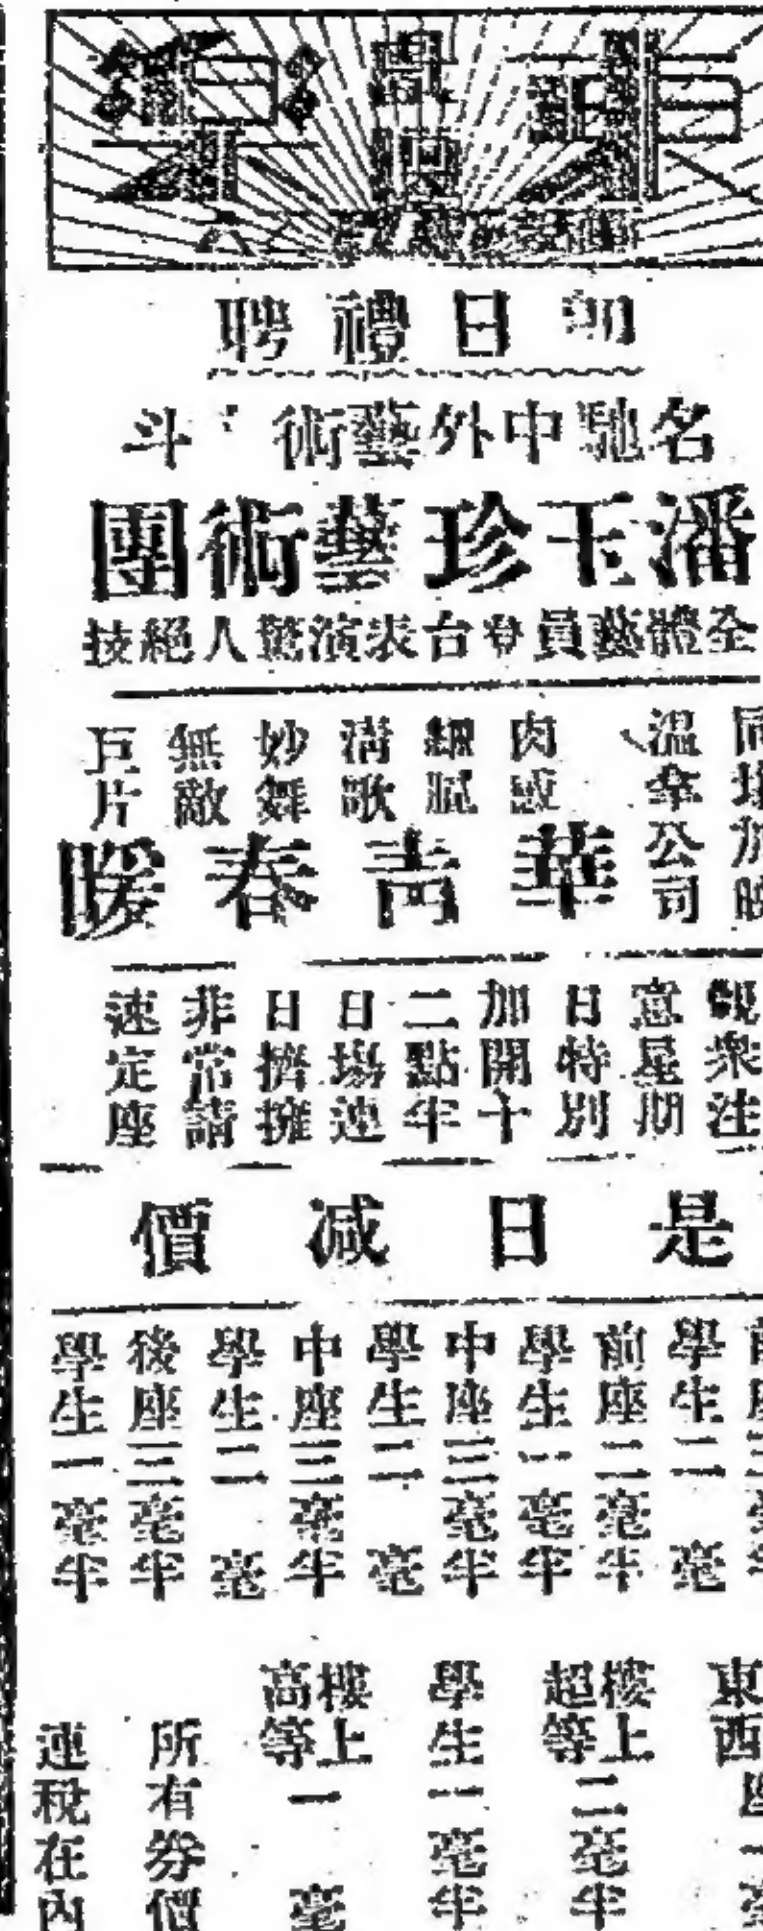 初日禮聘
名馳中外藝術斗
潘玉珍藝術團
全體藝員登台表演驚人絕技
同場加映
溫拿公司
肉感
細膩
清歌
妙舞
無敵
巨片
華青春暖
觀衆注
意星期
日特別
加開十
二點半
日場連
日擠擁
非常請
速定座
是日减價
學生二毫
前座二毫半
學生一毫半
中座三毫半
學生二毫
中座三毫半
學生二毫
後座三毫半
學生一毫半
東西座一毫
樓上超等二毫半
學生一毫半
樓上高等一毫
所有券價
連稅在內